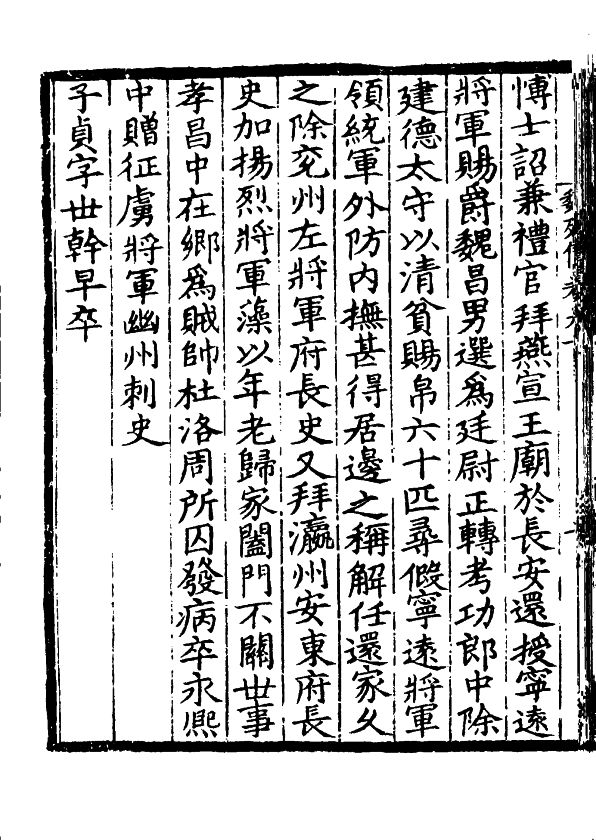 博士詔兼禮官拜燕宣王廟於長安還授寧遠
將軍賜爵魏昌男選爲廷尉正轉考功郎中除
建德太守以清貧賜帛六十匹尋假寧遠將軍
領統軍外防内撫甚得居邊之稱解任還家久
之除兖州左將軍府長史又拜瀛州安東府長
史加揚烈將軍藻以年老歸家闔門不關世事
孝昌中在鄉爲賊帥杜洛周所囚發病卒永熙
中贈征虜將軍幽州刺史
子貞字世幹早卒